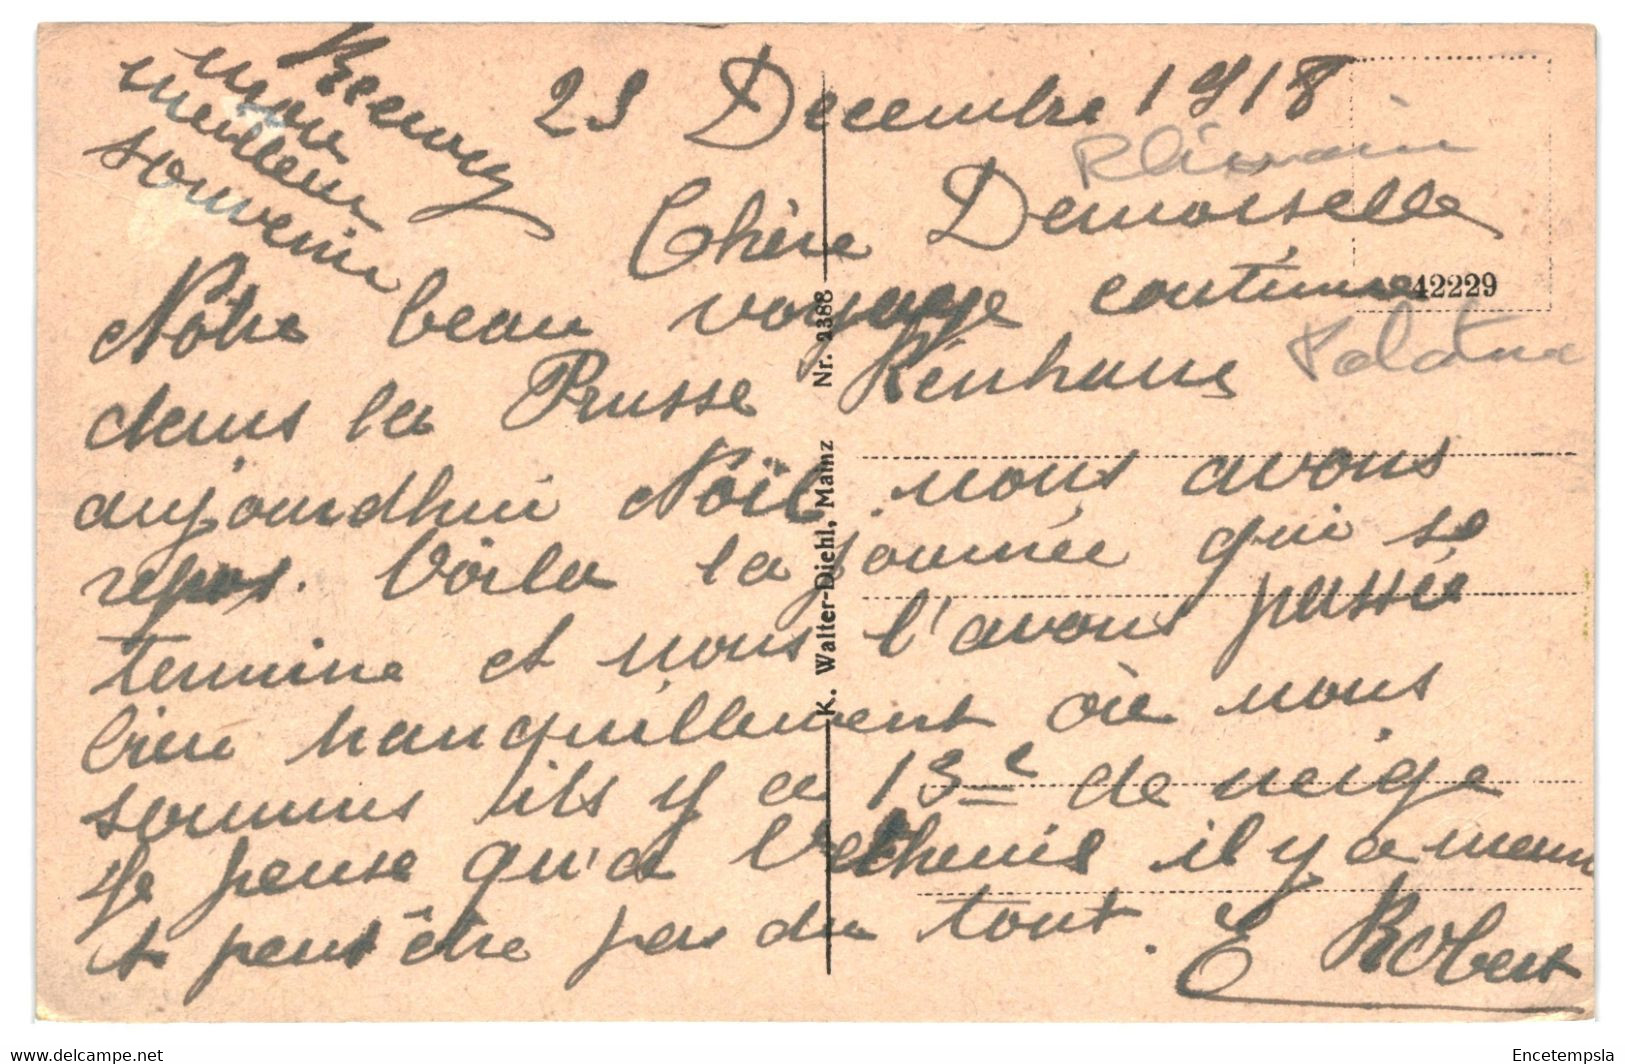 Recevez
mon
meilleur
souvenir
25 Decembre 1918
Chère Demoiselle
42229
Nôtre beau voyage continue
dans la Prusse Rénhane Palatina
aujourdhui Noïl nous avons
repos. Voila la journée qui se
termine et nous l'avons passée
bien tranquillement où nous
sommes ils y a 15 c de neige
Je pense qu'a Vethenil il y a moin
et peut être pas du tout.
E Robert
K. Walter-Diehl, Mainz Nr. 2388
www.delcampe.net
Encetempsla